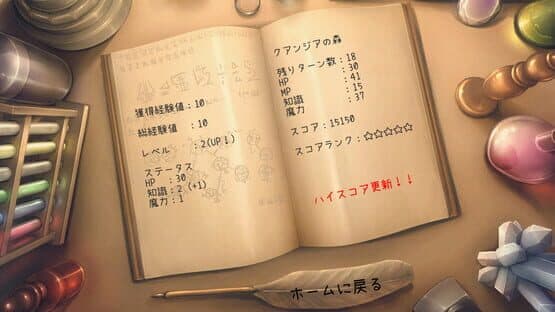 獲得経験値：10
総経験値　：10
レベル　：2(UP！)
ステータス
HP　：30
知識：2 (+1)
魔力：1
クアンジアの森
残りターン数：18
HP　：30
MP　：41
知識　：15
魔力　：37
スコア：15150
スコアランク：☆☆☆☆☆
ハイスコア更新！！
ホームに戻る